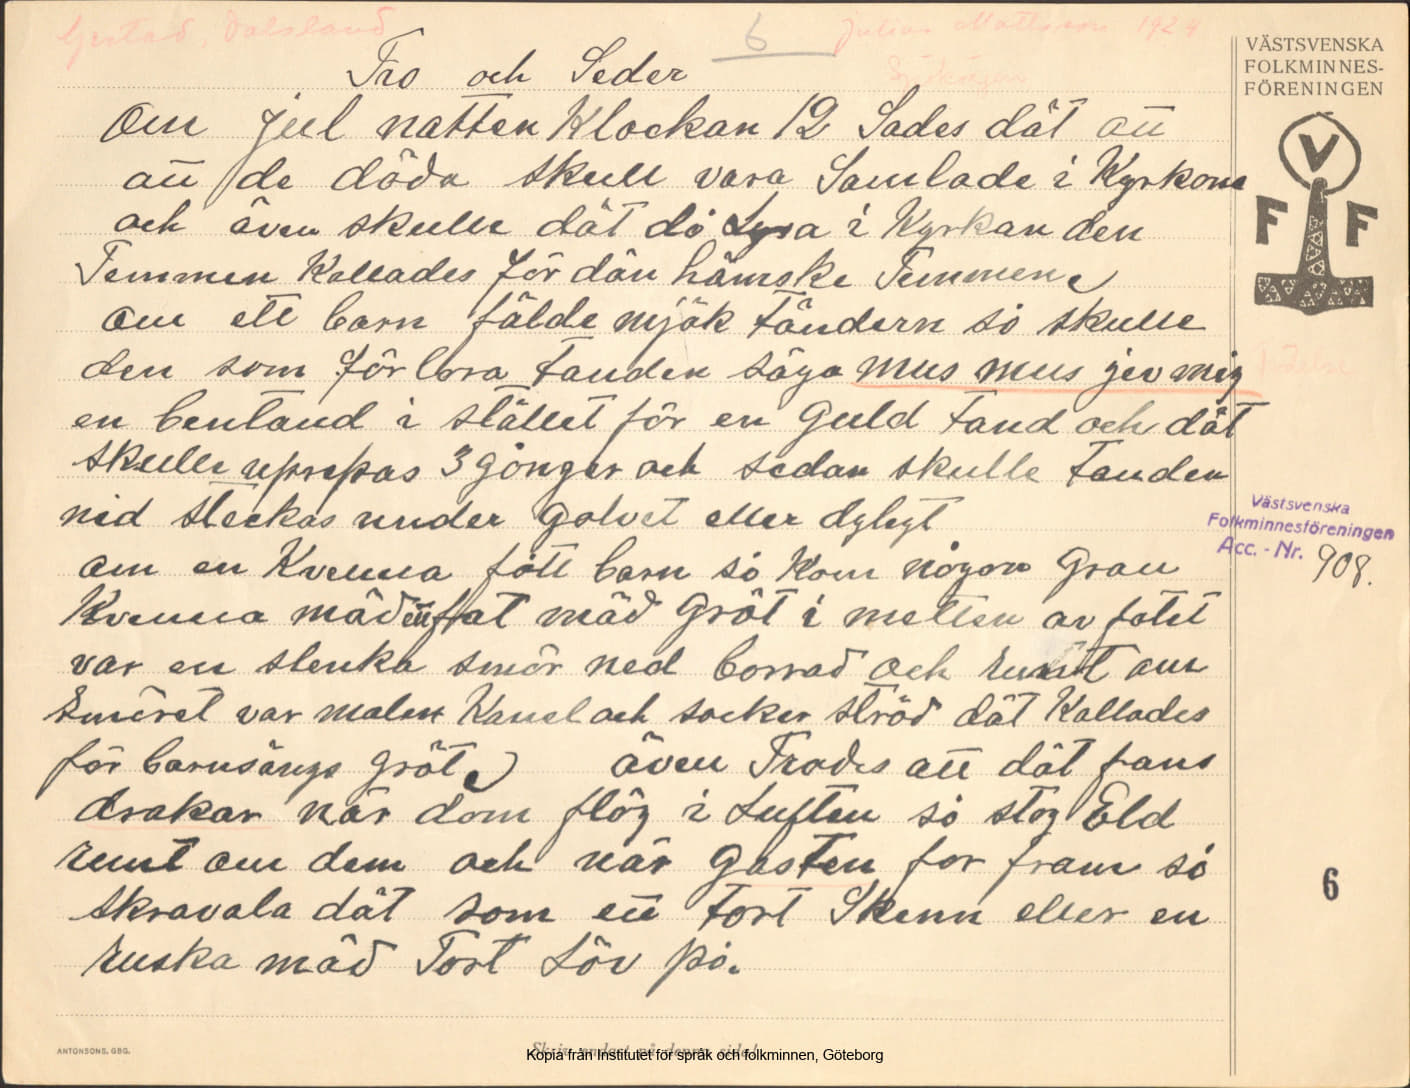 Gestad, Dalsland
6
Julius Mattsson 1924
VÄSTSVENSKA
FOLKMINNES-
FÖRENINGEN
V
F F
Tro och Seder
Om jul natten Klockan 12 Sades dät att
att de döda skull vara Samlade i Kyrkone
och även skulle dät då Lysa i Kyrkan den
Temmen Kallades för dän hämske Temmen
Om ett barn fälde mjök tändern så skulle
den som förlora tanden säga mus mus jev mig
en bentand i stället för en Guld tand och dät
skulle uprepas 3 gånger och sedan skulle tanden
ned steckas under golvet eller dyligt
om en Kvenna fött barn så Kom någon Gran
Kvenna mäd ett fat mäd Gröt i metten av fatet
var en slenka smör ned borrad och runt om
Smöret var malen Kanel och socker ströd dät Kallades
för barnsängs gröt även Trodes att dät fans
drakar när dom flög i Luften så stog Eld
runt om dem och när Gasten for fram så
skravala dät som ett tort Skenn eller en
ruska mäd Tort Löv på.
Västsvenska
Folkminnesföreningen
Acc.-Nr. 908.
6
ANTONSONS, GBG.
Skriv endast på denna sida!
Kopia från Institutet för språk och folkminnen, Göteborg